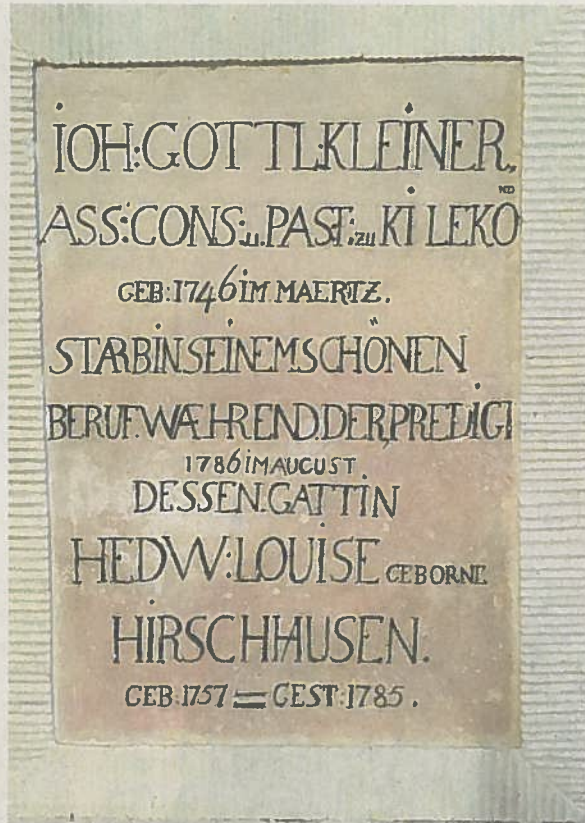 IOH:GOTTL:KLEINER,
ASS:CONS:u.PAST:zu KI LEKO ND
GEB:1746 IM MAERTZ.
STARB IN SEINEM SCHÖNEN
BERUF.WÆHREND.DER.PREDIGT
1786 IM AUGUST
DESSEN.GATTIN
HEDW:LOUISE GEBORNE
HIRSCHHAUSEN.
GEB:1757 = GEST:1785.